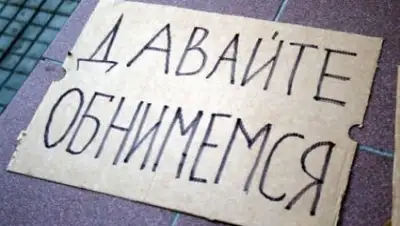 ДАВАЙТЕ
ОБНИМЕМСЯ